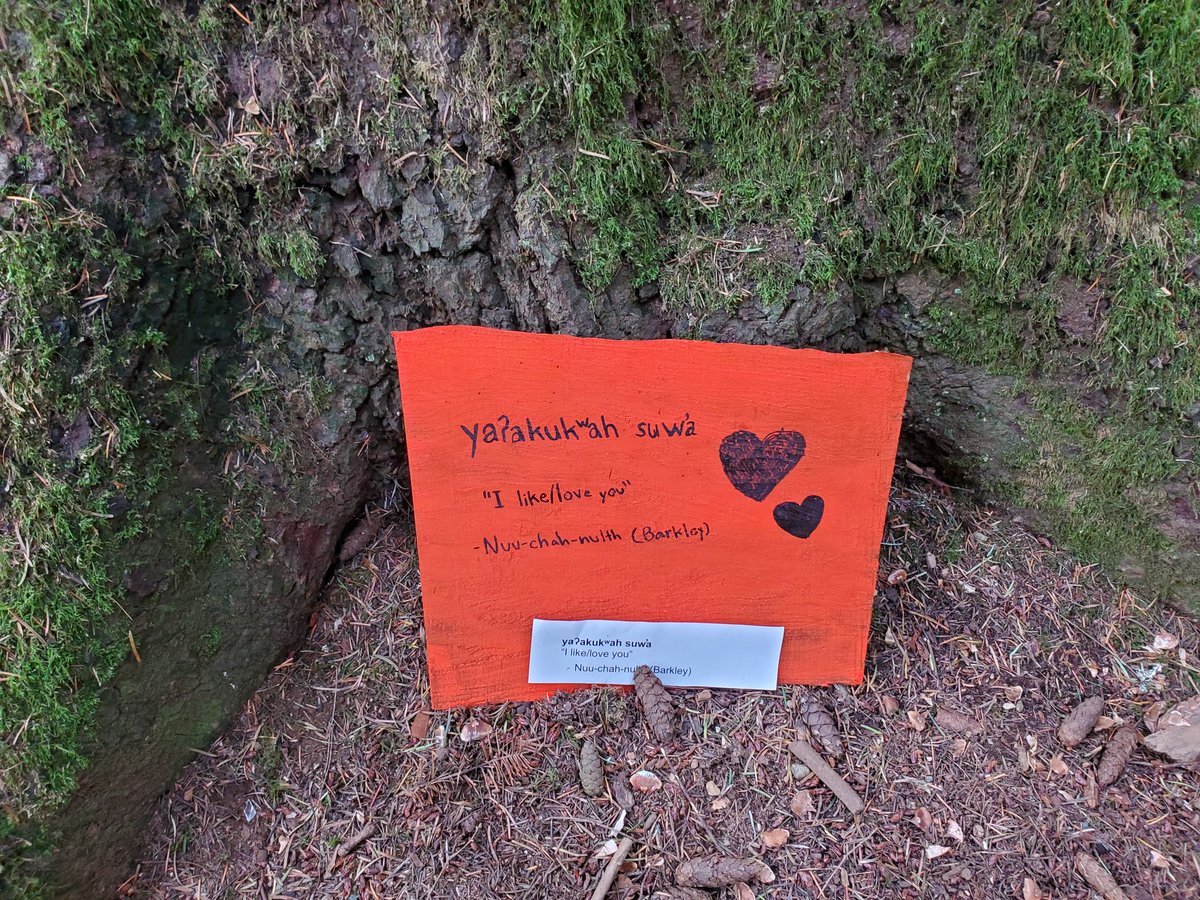 yaʔakukʷah suw̓a
"I like/love you"
-Nuu-chah-nulth (Barkley)
yaʔakukʷah suw̓a
"I like/love you"
- Nuu-chah-nulth (Barkley)